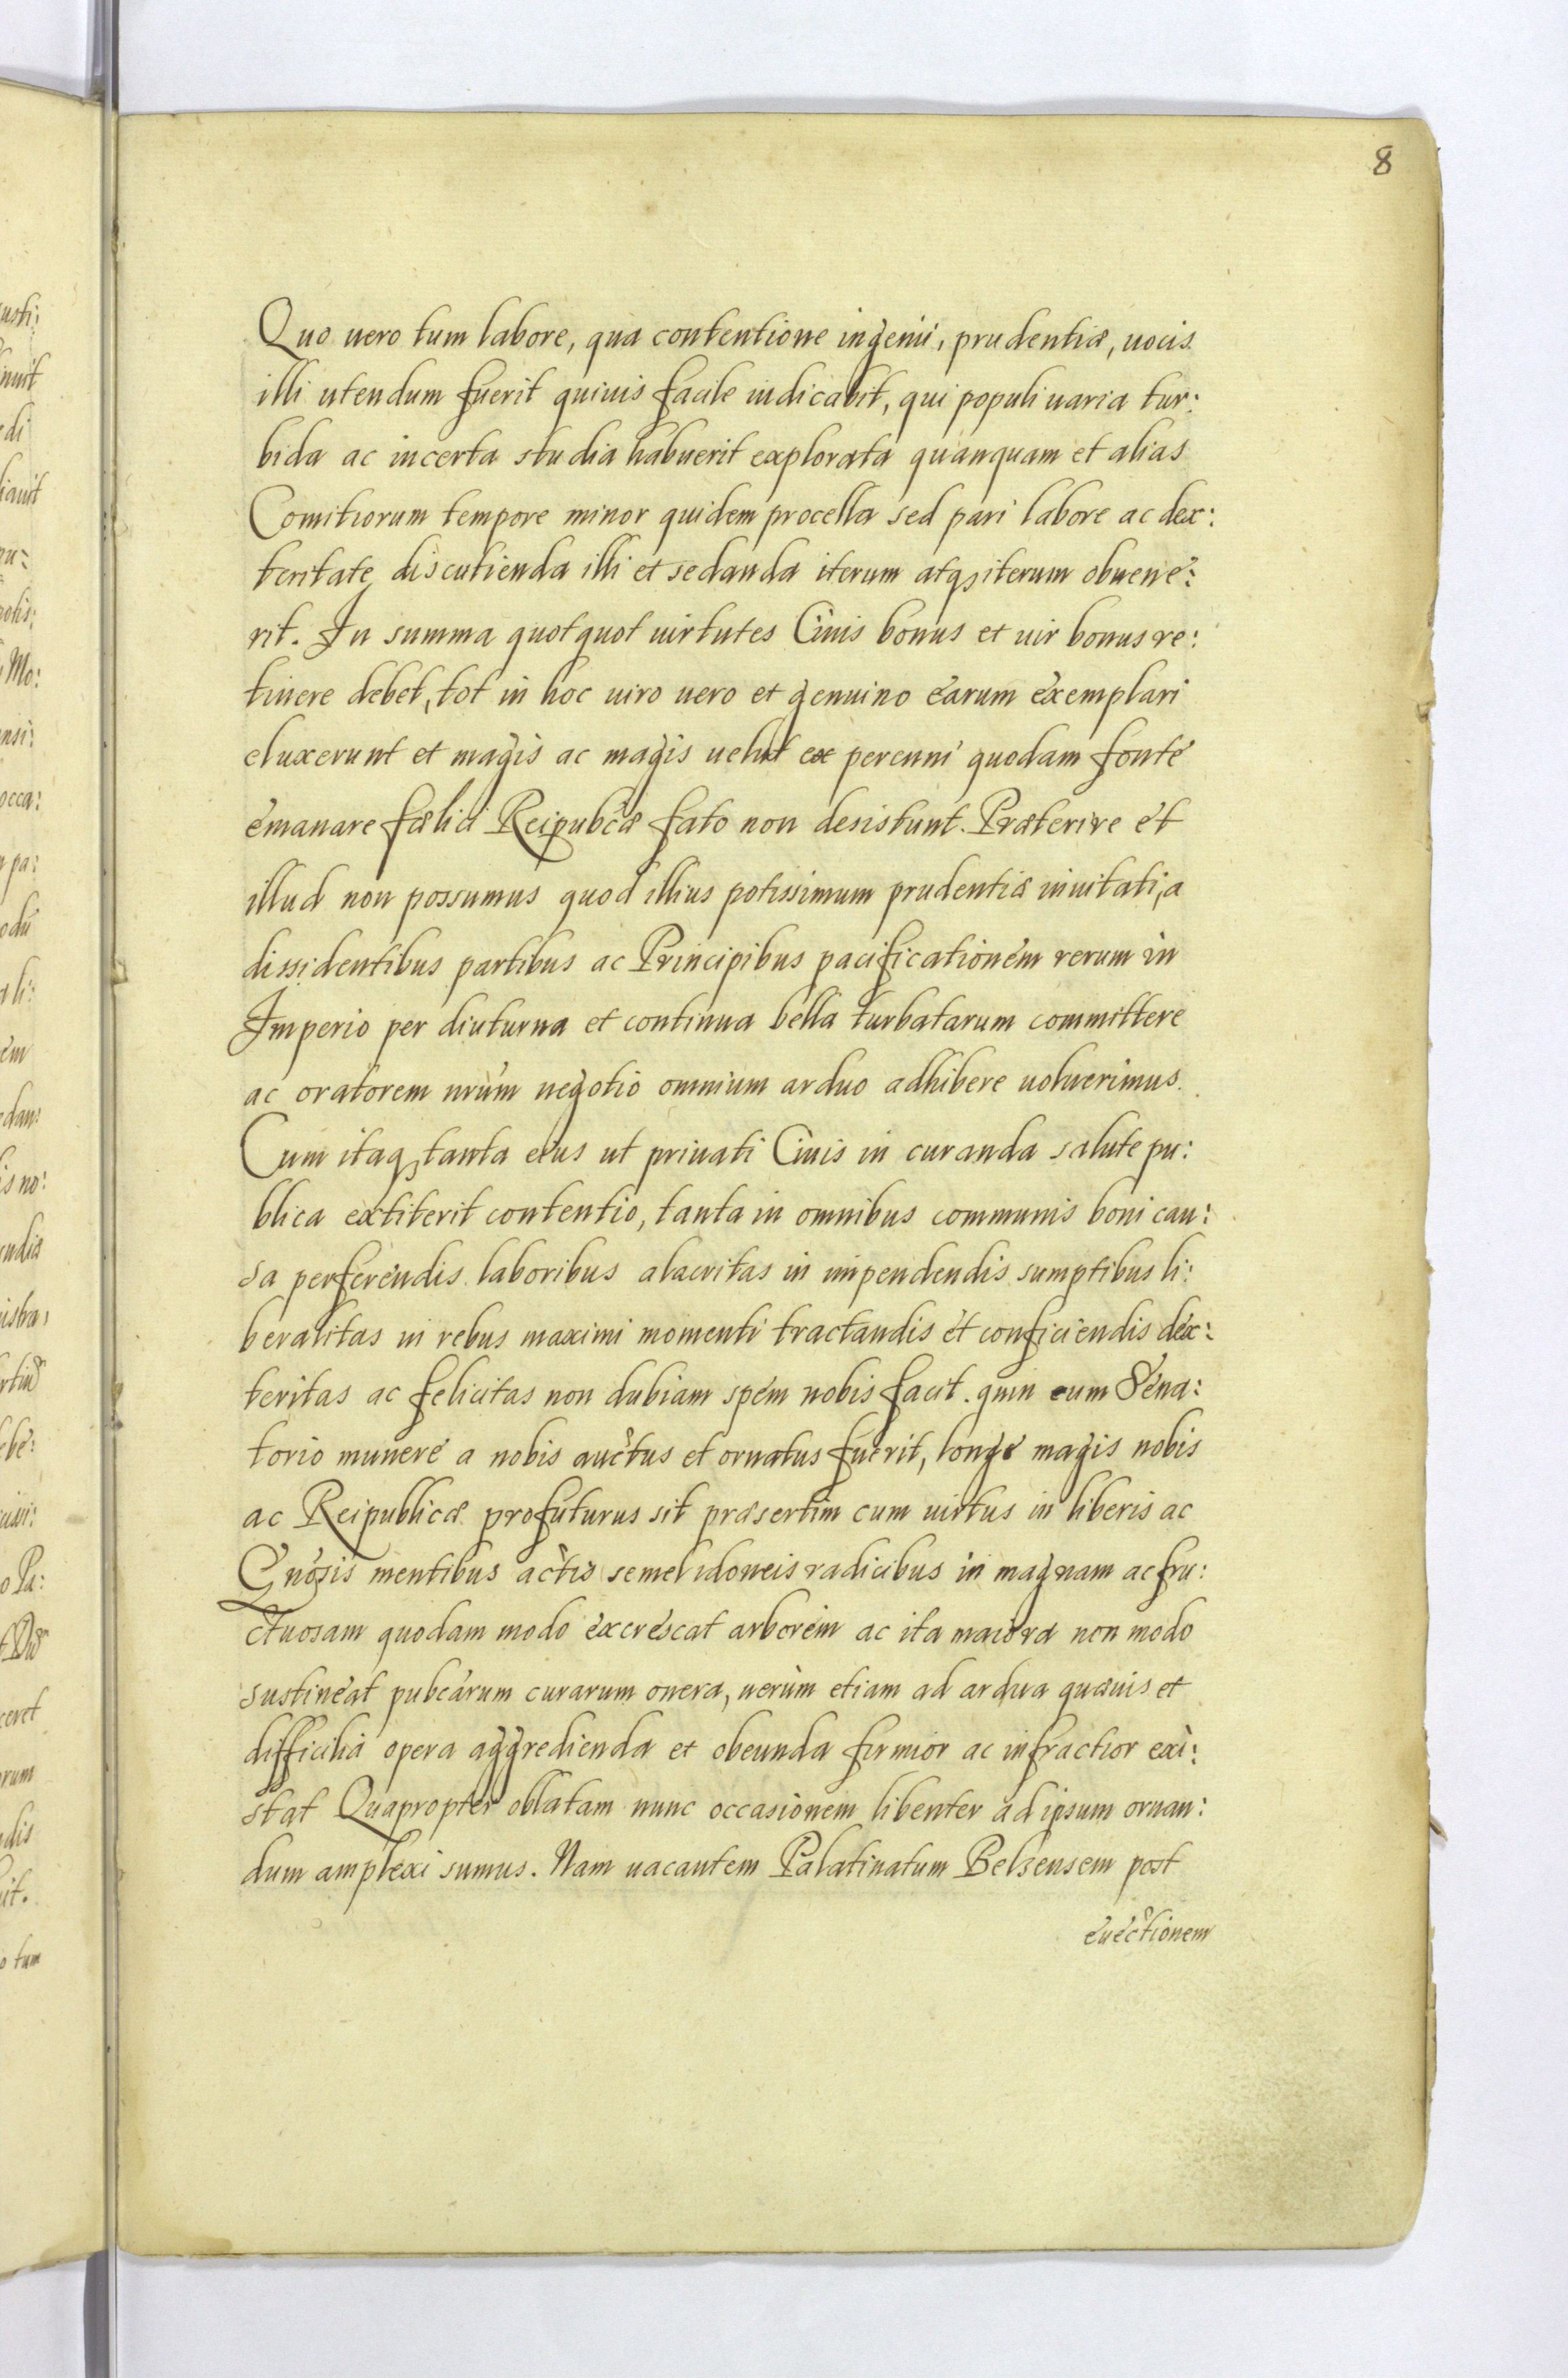 8
Quo uero tum labore, qua contentione ingenii, prudentiæ, uocis
illi utendum fuerit quiuis facile iudicabit, qui populi uaria tur:
bida ac incerta studia habuerit explorata quanquam et alias
Comitiorum tempore minor quidem procella sed pari labore ac dex:
teritate discutienda illi et sedanda iterum atqꝫ iterum obuene:
rit. In summa quotquot uirtutes Ciuis bonus et uir bonus re:
tinere debet, tot in hoc uiro uero et genuino earum exemplari
eluxerunt et magis ac magis uelut ex perenni quodam fonte
emanare fælici Reipubcæ fato non desistunt. Præterire et
illud non possumus quod illius potissimum prudentia inuitati, a
dissidentibus partibus ac Principibus pacificationem rerum in
Imperio per diuturna et continua bella turbatarum committere
ac oratorem nrum negotio omnium arduo adhibere uoluerimus.
Cum itaqꝫ tanta eius ut priuati Ciuis in curanda salute pu:
blica extiterit contentio, tanta in omnibus communis boni cau:
sa perferendis laboribus alacritas in impendendis sumptibus li:
beralitas in rebus maximi momenti tractandis et conficiendis dex:
teritas ac felicitas non dubiam spem nobis facit. quin cum Sena:
torio munere a nobis auctus et ornatus fuerit, longe magis nobis
ac Reipublicæ profuturus sit præsertim cum uirtus in liberis ac
Gnosis mentibus actis semel idoneis radicibus in magnam ac fru:
ctuosam quodam modo excrescat arborem ac ita maiora non modo
sustineat pubcarum curarum onera, uerùm etiam ad ardua quæuis et
difficilia opera aggredienda et obeunda firmior ac infractior exi:
stat Quapropter oblatam nunc occasionem libenter ad ipsum ornan:
dum amplexi sumus. Nam uacantem Palatinatum Belzensem post
euectionem